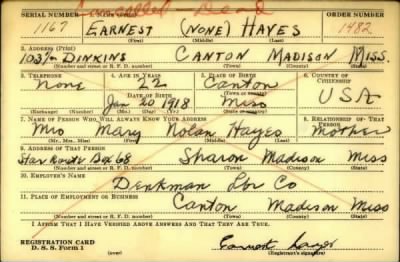 Cancelled - Dead
SERIAL NUMBER 1. NAME (Print) ORDER NUMBER
1167 EARNEST (NONE) HAYES 1482
(First) (Middle) (Last)
2. ADDRESS (Print)
103½ DINKINS CANTON MADISON MISS.
(Number and street or R. F. D. number) (Town) (County) (State)
3. TELEPHONE 4. AGE IN YEARS 5. PLACE OF BIRTH 6. COUNTRY OF CITIZENSHIP
None 22 Canton
DATE OF BIRTH (Town or county)
Jan 20 1918 Miss USA
(Exchange) (Number) (Mo.) (Day) (Yr.) (State or country)
7. NAME OF PERSON WHO WILL ALWAYS KNOW YOUR ADDRESS 8. RELATIONSHIP OF THAT PERSON
Mrs Mary Nolan Hayes Mother
(Mr., Mrs., Miss) (First) (Middle) (Last)
9. ADDRESS OF THAT PERSON
Star Route Box 68 Sharon Madison Miss
(Number and street or R. F. D. number) (Town) (County) (State)
10. EMPLOYER'S NAME
Denkman Lbr Co
11. PLACE OF EMPLOYMENT OR BUSINESS
Canton Madison Miss
(Number and street or R. F. D. number) (Town) (County) (State)
I AFFIRM THAT I HAVE VERIFIED ABOVE ANSWERS AND THAT THEY ARE TRUE.
REGISTRATION CARD
D. S. S. Form 1 (over) Earnest Hayes
(Registrant's signature)